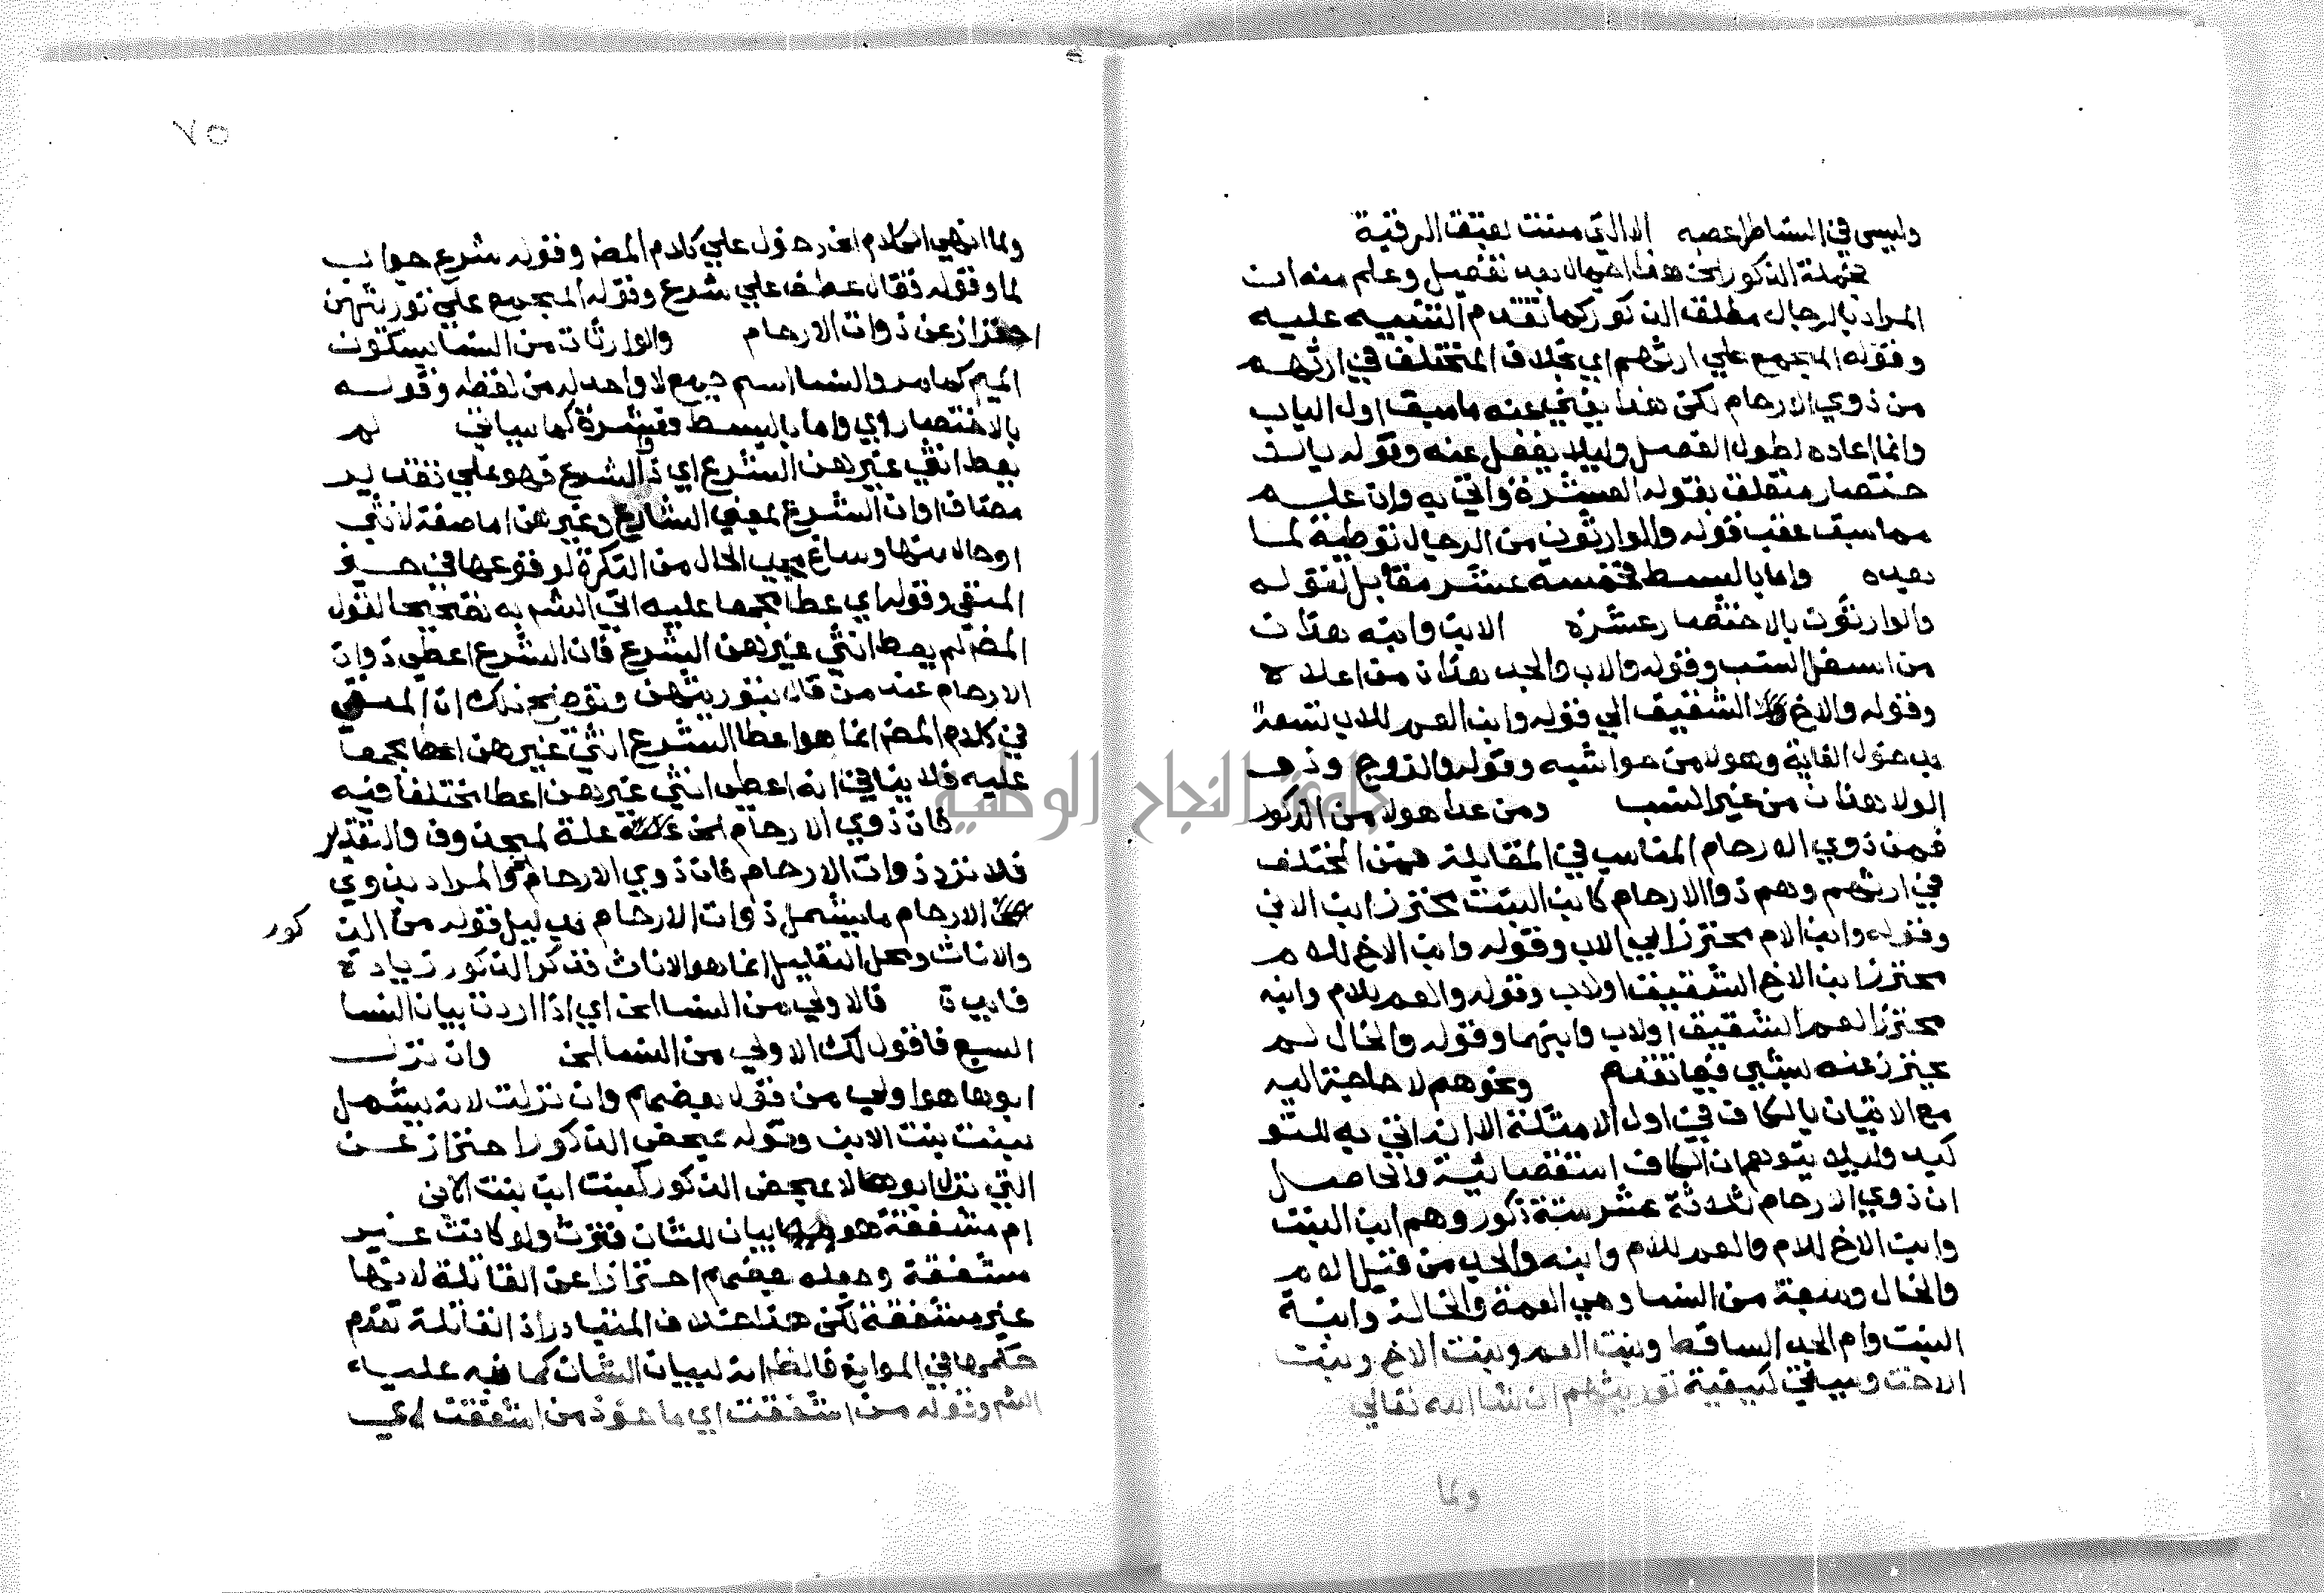 وليس في النساطرا عصبه الا التي منت بعتق الرقبة
فجملة الذكور الخ هذا اجمال بعد تفصيل وعلم منه ان
المراد بالرجال مطلق الذكور كما تقدم التنبيه عليه
وقوله المجمع علي ارثهم اي بخلاف المختلف في ارثهم
من ذوي الارحام لكن هذا يغني عنه ما سبق اول الباب
وانما اعاده لطول الفصل وليلا يغفل عنه وقوله بالا
ختصار متعلق بقوله العشرة واتي به وان علم
مما سبق عقب قوله والوارثون من الرجال توطية لما
بعده واما بالبسط فخمسة عشر مقابل لقوله
والوارثون بالاختصار عشره الابن وابنه هذان
من اسفل النسب وقوله والاب والجد هذان من اعلاه
وقوله والاخ الشقيق الي قوله وابن العم للاب تسعة
بدخول الغاية وهولا من حواشيه وقوله والزوج وذو
الولا هذان من غير النسب ومن عدا هولا من الذكور
فمن ذوي الارحام المناسب في المقابلة فمن المختلف
في ارثهم وهم ذوا الارحام كابن البنت محترز ابن الابن
وقوله وابن الام محترز ابي الاب وقوله وابن الاخ للام
محترز ابن الاخ الشقيق اولاب وقوله والعم للام وابنه
محترز العم الشقيق اولاب وابنهما وقوله والخال لم
يحترز عنه بشي فيما تقدم ونحوهم لا حاجة اليه
مع الاتيان بالكاف في اول الامثلة الا انه اتي به للتو
كيد وليلا يتوهم ان الكاف استقصائية والحاصل
ان ذوي الارحام ثلاثة عشر ستة ذكور وهم ابن البنت
وابن الاخ للام والعم للام وابنه والجد من قبل الام
والخال وسبعة من النسا وهي العمة والخالة وابنة
البنت وام الجد الساقط وبنت العم وبنت الاخ وبنت
الاخت وسياتي كيفية توريثهم ان شا الله تعالي
ولما
٧٥
ولما انهي الكلام الخ دخول علي كلام المصـ وقوله شرع جواب
لما وقوله فقال عطف علي شرع وقوله المجمع علي توريثهن
احتراز عن ذوات الارحام والوارثات من النسا بسكون
الميم كما مر والنسا اسم جمع لا واحد له من لفظه وقوله
بالاختصار اي واما بالبسط فعشرة كما سياتي لم
يعط انثي غيرهن الشرع اي ذو الشرع فهو علي تقدير
مضاف او ان الشرع بمعني الشارع وغيرهن اما صفة لانثي
او حال منها وساغ مجي الحال من النكرة لوقوعها في حيز
النفي وقوله اي عطا مجمعا عليه اتي الشم به تصحيحا لقول
المصـ لم يعط انثي غيرهن الشرع فان الشرع اعطي ذوات
الارحام عند من قال بتوريثهن وتوضيح ذلك ان المنفي
في كلام المصـ انما هو اعطا الشرع انثي غيرهن اعطا مجمعا
عليه فلا ينافي انه اعطي انثي غيرهن اعطا مختلفا فيه
فان ذوي الارحام الخ علة لمحذوف والتقدير
فلا ترد ذوات الارحام فان ذوي الارحام الخ والمراد بذوي
الارحام ما يشمل ذوات الارحام بدليل قوله من الذكور
والاناث ومحل التعليل انما هو الاناث فذكر الذكور زيادة
فايدة فالاولي من النسا الخ اي اذا اردت بيان النسا
السبع فاقول لك الاولي من النسا الخ وان نزل
ابوها هو اولي من قول بعضهم وان نزلت لانه يشمل
بنت بنت الابن وقوله بمحض الذكور احتراز عن
التي نزل ابوها لا بمحض الذكور كبنت ابن بنت الابن
ام مشفقة هو بيان للشان فترث ولو كانت غير
مشفقة وجعله بعضهم احترازا عن القاتلة لانها
غير مشفقة لكن هذا خلاف المتبادر اذ القاتلة تقدم
حكمها في الموانع فالظاهر انه لبيان الشان كما نبه عليه
الشم وقوله من اشفقت اي ماخوذ من اشفقت اي